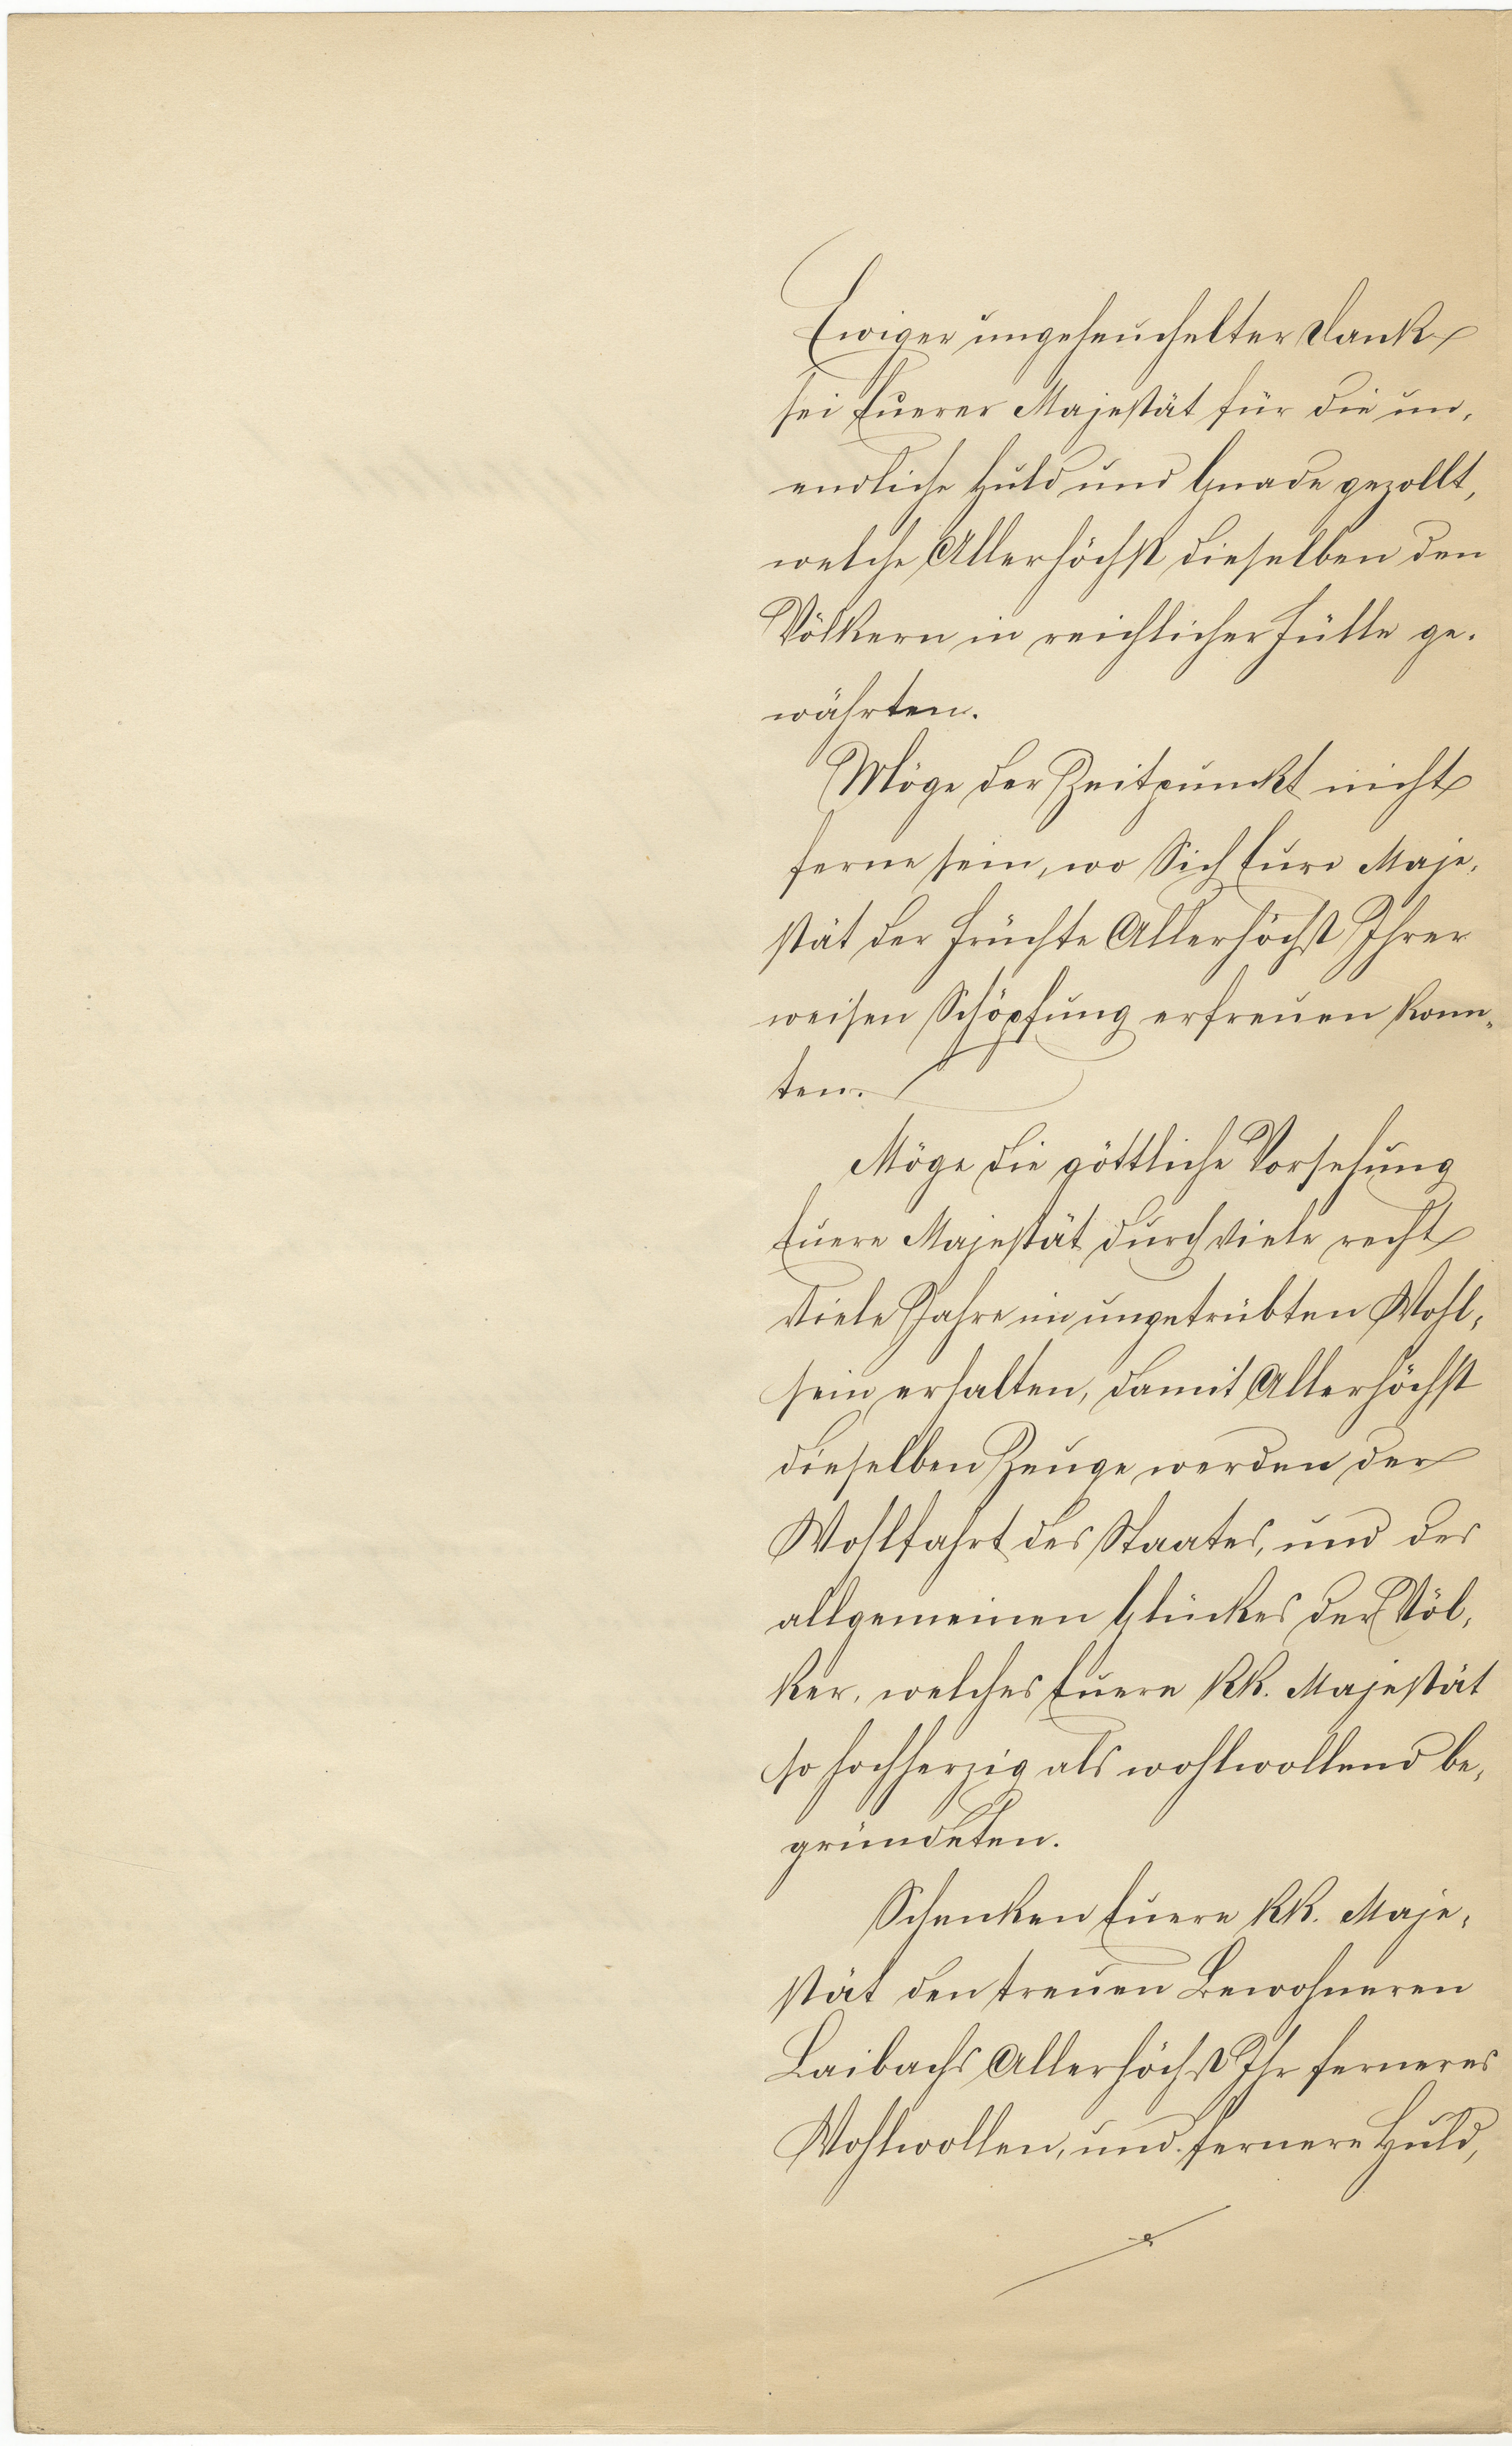 Ewiger ungeheuchelter Dank
sei Euerer Majestät für die un-
endliche Huld und Gnade gezollt,
welche Allerhöchst dieselben den
Völkern in reichlicher Fülle ge-
währten.
Möge der Zeitpunckt nicht
ferne sein, wo Sich Eure Maje-
stät der Früchte Allerhöchst Ihrer
weisen Schöpfung erfreuen konn-
ten.
Möge die göttliche Vorsehung
Euere Majestät durch viele recht
viele Jahre im ungetrübten Wohl-
sein erhalten, damit Allerhöchst
dieselben Zeuge werden der
Wohlfahrt des Staates, und des
allgemeinen Glückes der Völ-
ker, welches Euere KK. Majestät
so hochherzig als wohlwollend be-
gründeten.
Schenken Euere KK. Maje-
stät den treuen Bewohneren
Laibachs Allerhöchst Ihr ferneres
Wohlwollen, und fernere Huld,